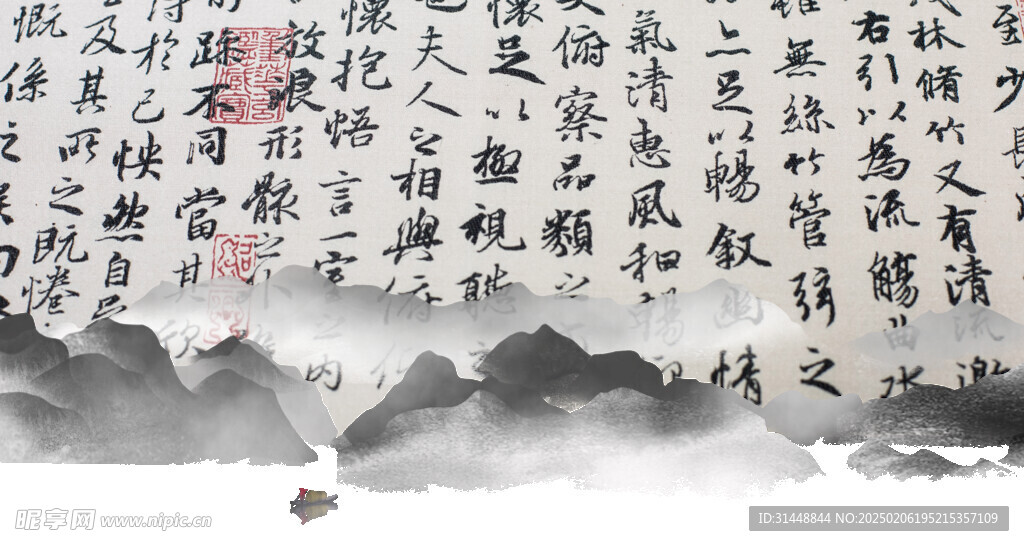 至少長
茂林脩竹又有清流激
右引以為流觴曲水
雖無絲竹管弦之
亦足以暢叙幽情
氣清惠風和暢仰
俯察品類之
懷足以極視聽之
也夫人之相與俯仰
懷抱悟言一室之内
放浪形骸之外雖
殊不同當其欣
得於己怏然自足
及其所之既惓
慨係之矣向
昵享网 www.nipic.cn
ID:31448844 NO:20250206195215357109